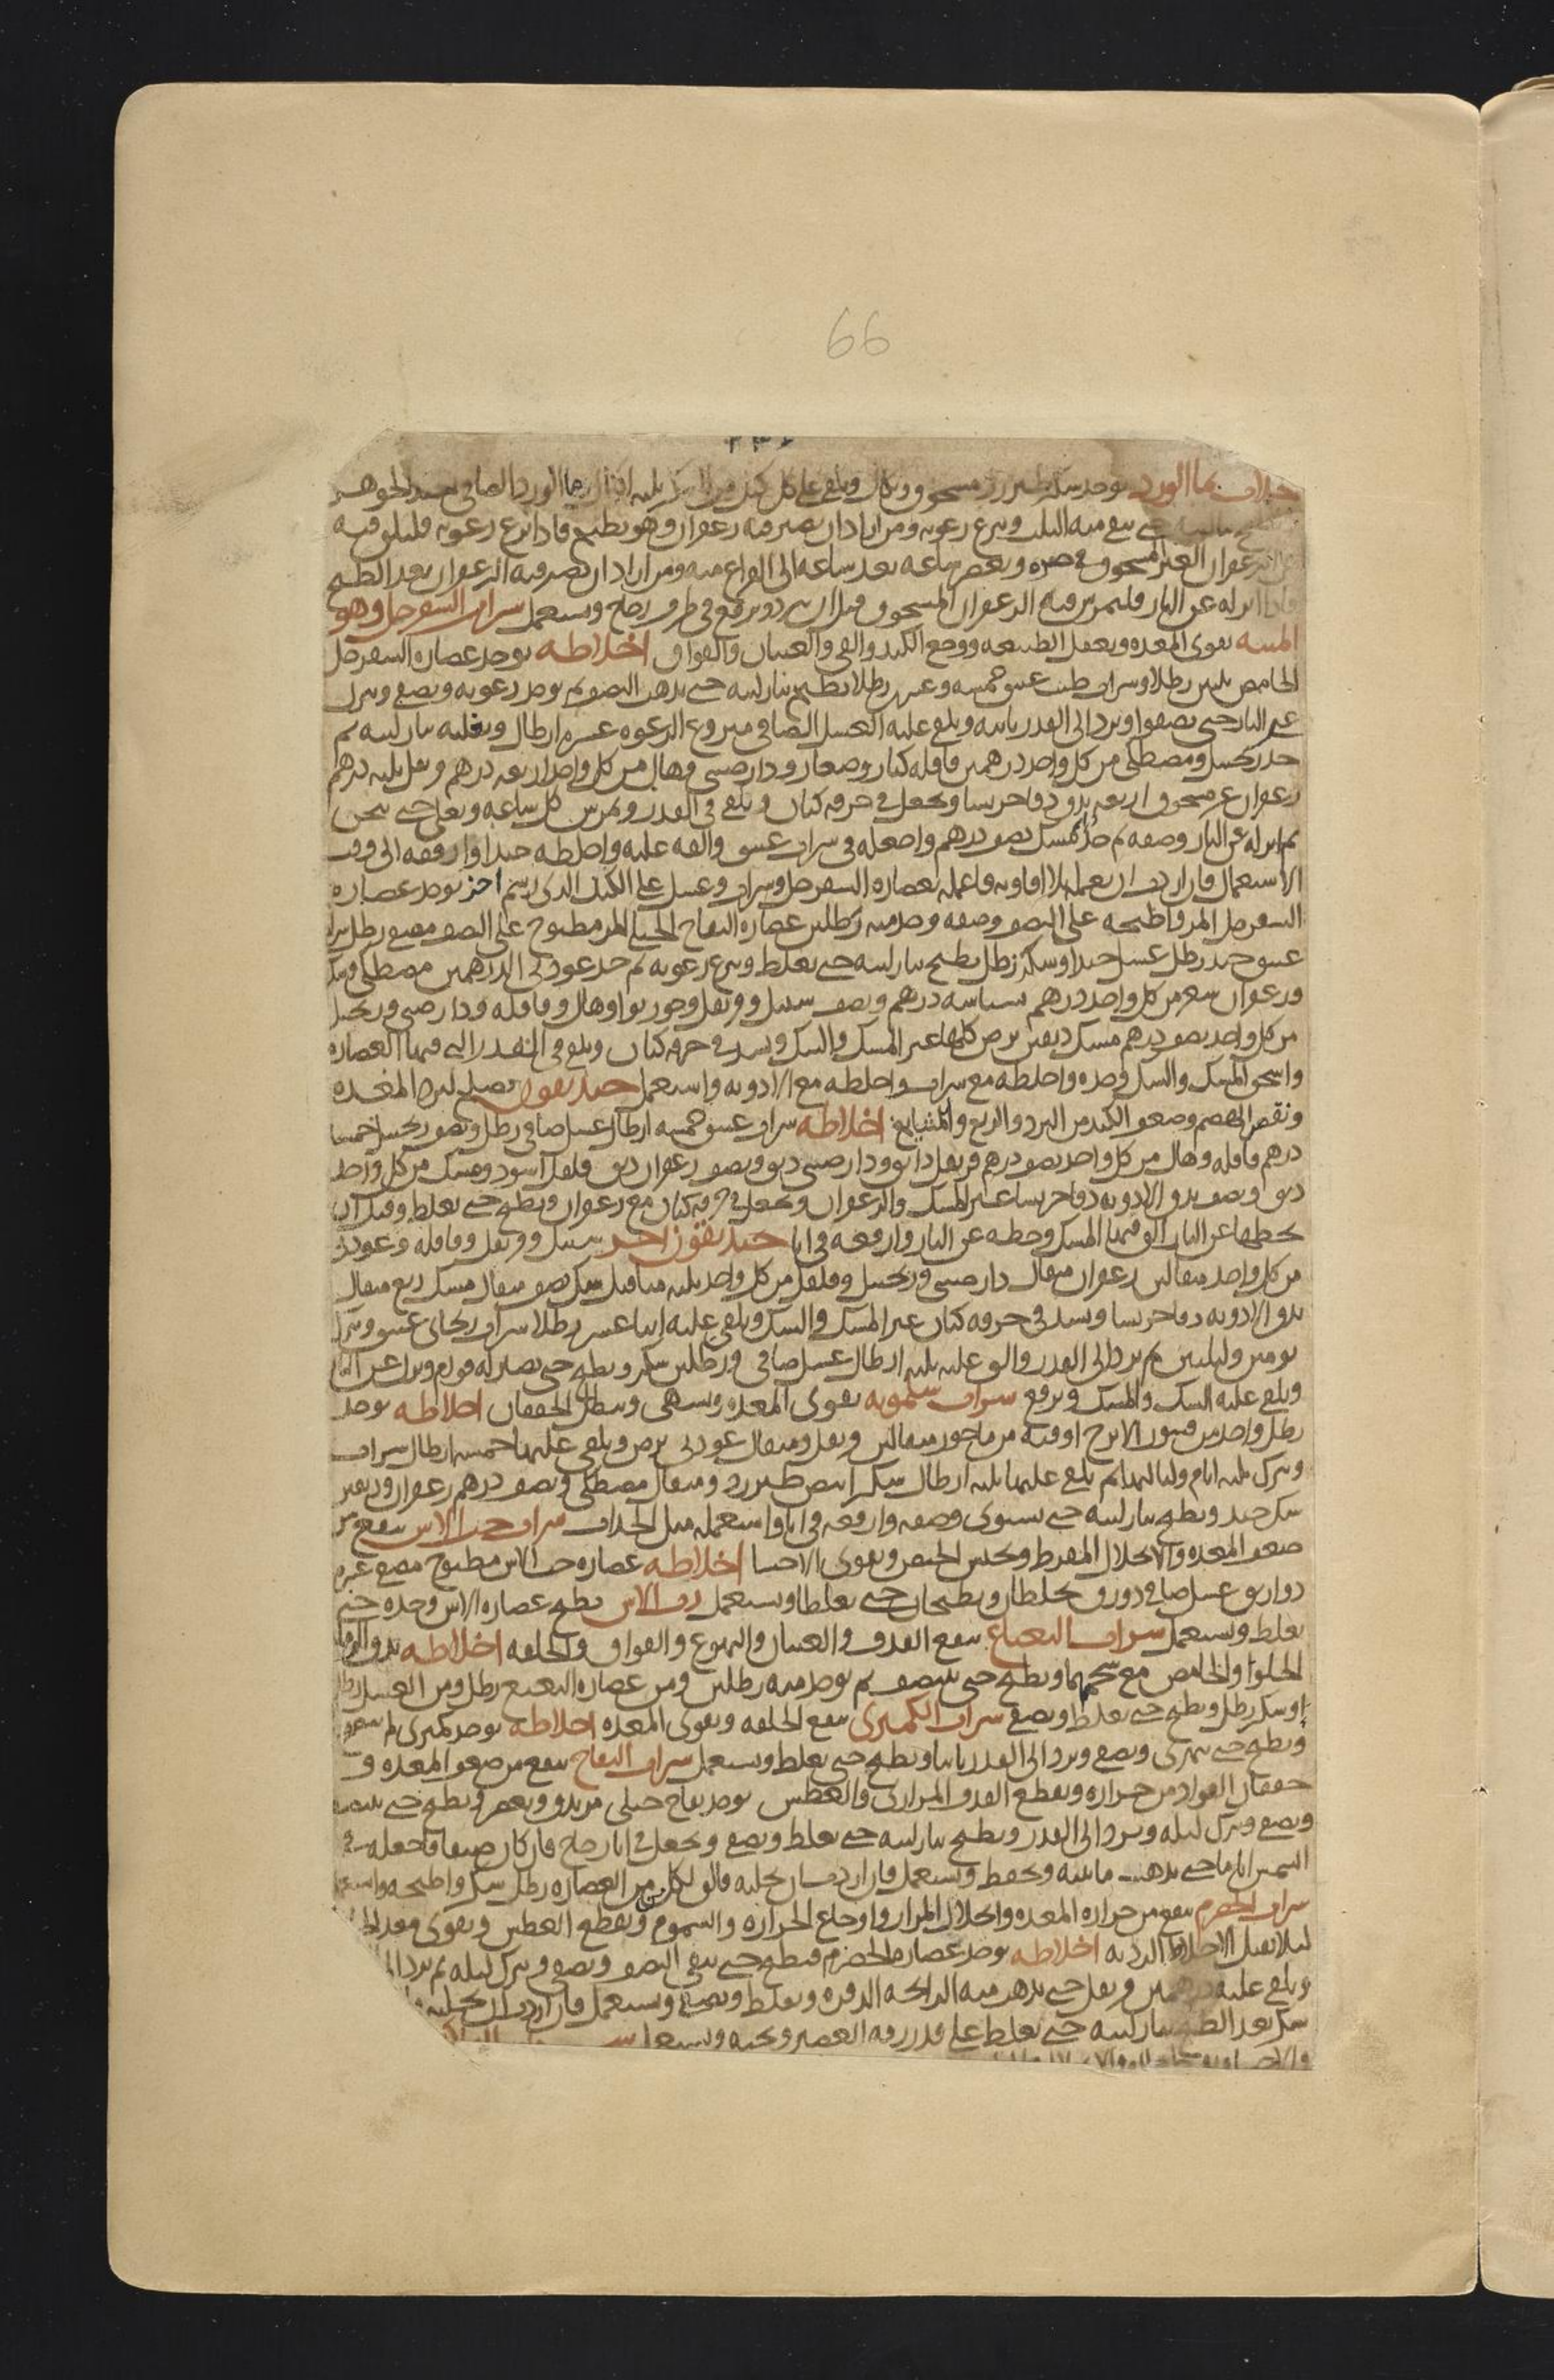 66
جلاب بما الورد يوخذ سكر طبرزد مسحوق ويكال ويلقى على كل كيل من السكر ثلثه اكيال من ما الورد الصافي الجيد الجوهر
حتى يبقى منه الثلث وينزع رغوته ومن اراد ان يصير فيه زعفران وهو يطبخ فاذا نزع رغوته فليلق فيه
الزعفران الغير مسحوق في صره ويعصر ساعه بعد ساعه الى الفراغ منه ومن اراد ان يصير فيه الزعفران بعد الطبخ
فاذا انزله عن النار فليمرس فيه الزعفران المسحوق قبل ان يبرد ويرفع في ظرف زجاج ويستعمل شراب السفرجل وهو
الميبه يقوى المعده ويعقل الطبيعه ووجع الكبد والقي والغثيان والفواق اخلاطه يوخذ عصاره السفرجل
الحامض ثلثين رطلا وشراب طيب عتيق خمسه وعشرين رطلا يطبخ بنار لينه حتى يذهب النصف ثم يوخذ رغوته ويصفى ويترك
عن النار حتى يصفوا ويرد الى القدر ثانيه ويلقى عليه العسل الصافي منزوع الرغوه عشره ارطال ويغليه بنار لينه ثم
خذ زنجبيل ومصطكى من كل واحد درهمين قاقله كبار وصغار ودارصيني وهال من كل واحد اربعه درهم قرنفل ثلثه درهم
زعفران غير مسحوق اربعه يدق دقا جريشا ويجعل في خرقه كتان ويلقى في القدر ويمرس كل ساعه ويغلى حتى يثخن
ثم انزله عن النار وصفه ثم خذ مسك نصف درهم واجعله في شراب عتيق والقه عليه واخلطه جيدا وارفعه الى وقت
الاستعمال فان اردت ان تعمله بلا افاويه فاعمله بعصاره السفرجل وشراب وعسل على الكيل الذي رسم اخر يوخذ عصاره
السفرجل المر فاطبخه على النصف وصفه وخذ منه رطلين عصاره التفاح الجبلي المر مطبوخ على النصف مصفى رطل شراب
عتيق جيد رطل عسل جيد وسكر رطل يطبخ بنار لينه حتى يغلظ وينزع رغوته ثم خذ عود ني الدرهمين مصطكى وسك
وزعفران شعر من كل واحد درهم بسباسه درهم ونصف سنبل وقرنفل وجوزبوا وهال وقاقله ودارصيني وزنجبيل
من كل واحد نصف درهم مسك دانقين يرض كلها غير المسك والسك ويشد في خرقه كتان ويلقى في القدر التي فيها العصاره
واسحق المسك والسك وحده واخلطه مع شراب واخلطه مع الادويه واستعمل خنديقون يصلح لبرد المعده
ونقص الهضم وضعف الكبد من البرد والربع والمشايخ اخلاطه شراب عتيق خمسه ارطال عسل صافي رطل ونصف زنجبيل خمسه
درهم قاقله وهال من كل واحد نصف درهم قرنفل دانق ودارصيني دانق ونصف زعفران دانق فلفل اسود ومسك من كل واحد
دانق ونصف يدق الادويه دقا جريشا غير المسك والزعفران ويجعل في خرقه كتان مع زعفران ويطبخ حتى يغلظ وقبل ان
تحطها عن النار الق فيها المسك وحطه عن النار وارفعه في انا خنديقون اخر سنبل وقرنفل وقاقله وعود ني
من كل واحد مثقالين زعفران مثقال دارصيني وزنجبيل وفلفل من كل واحد ثلثه مثاقيل سك نصف مثقال مسك ربع مثقال
يدق الادويه دقا جريشا ويشد في خرقه كتان غير المسك والسك ويلقى عليه اثنا عشر رطلا شراب ريحاني عتيق ويترك
يومين وليلتين ثم يرد الى القدر والق عليه ثلثه ارطال عسل صافي ورطلين سكر ويطبخ حتى يصير له قوام وينزل عن النار
ويلقى عليه السك والمسك ويرفع شراب سلمويه يقوى المعده ويشهى ويبطل الخفقان اخلاطه يوخذ
رطل واحد من قشور الاترج اوقيه مرماحوز مثقالين قرنفل ومثقال عود ني يرض ويلقى عليها خمسه ارطال شراب
ويترك ثلثه ايام ولياليها ثم يلقى عليها ثلثه ارطال سكر ابيض طبرزد ومثقال مصطكى ونصف درهم زعفران ودانقين
سك جيد ويطبخ بنار لينه حتى يستوى وصفه وارفعه في انا واستعمله مثل الجلاب شراب حب الاس ينفع من
ضعف المعده والانحلال المفرط ويحبس الحيض ويقوى الاحشا اخلاطه عصاره حب الاس مطبوخ مصفى عشره
دواريق عسل صافي دورق يخلطان ويطبخان حتى يغلظا ويستعمل رب الاس يطبخ عصاره الاس وحده حتى
يغلظ ويستعمل شراب النعناع ينفع القذف والغثيان والتهوع والفواق والخلفه اخلاطه يدق الرمان
الحلوا والحامض مع شحمهما ويطبخ حتى ينتصف ثم يوخذ منه رطلين ومن عصاره النعنع رطل ومن العسل رطل
او سكر رطل ويطبخ حتى يغلظ ويصفى شراب الكمثرى ينفع الخلفه ويقوى المعده اخلاطه يوخذ كمثرى لم ينضج
ويطبخ حتى يتهرى ويصفى ويرد الى القدر ثانيا ويطبخ حتى يغلظ ويستعمل شراب التفاح ينفع من ضعف المعده و
خفقان الفواد من حراره ويقطع القذف المراري والعطش يوخذ تفاح جبلى مز يدق ويعصر ويطبخ حتى ينتصف
ويصفى ويترك ليله ويرد الى القدر ويطبخ بنار لينه حتى يغلظ ويصفى ويجعل في انا زجاج فان كان صيفا فاجعله في
الشمس اياما حتى يذهب مائيته ويحفظ ويستعمل فان اردت ان تحليه فالق لكل من العصاره رطل سكر واطبخه واستعمله
شراب الحصرم ينفع من حراره المعده وانحلال المرار واوجاع الحراره والسموم ويقطع العطش ويقوى معد
ليلا تقبل الاخلاط الرديه اخلاطه يوخذ عصاره الحصرم فيطبخ حتى يبقى النصف ويصفى ويترك ليله ثم يرد
ويلقى عليه درهمين قرنفل حتى يذهب منه الرائحه الذفره ويغلظ ويصفى ويستعمل فان اردت ان تحليه
سكر بعد الطبخ بنار لينه حتى يغلظ على قدر رقه العصير وثخنه ويستعمل